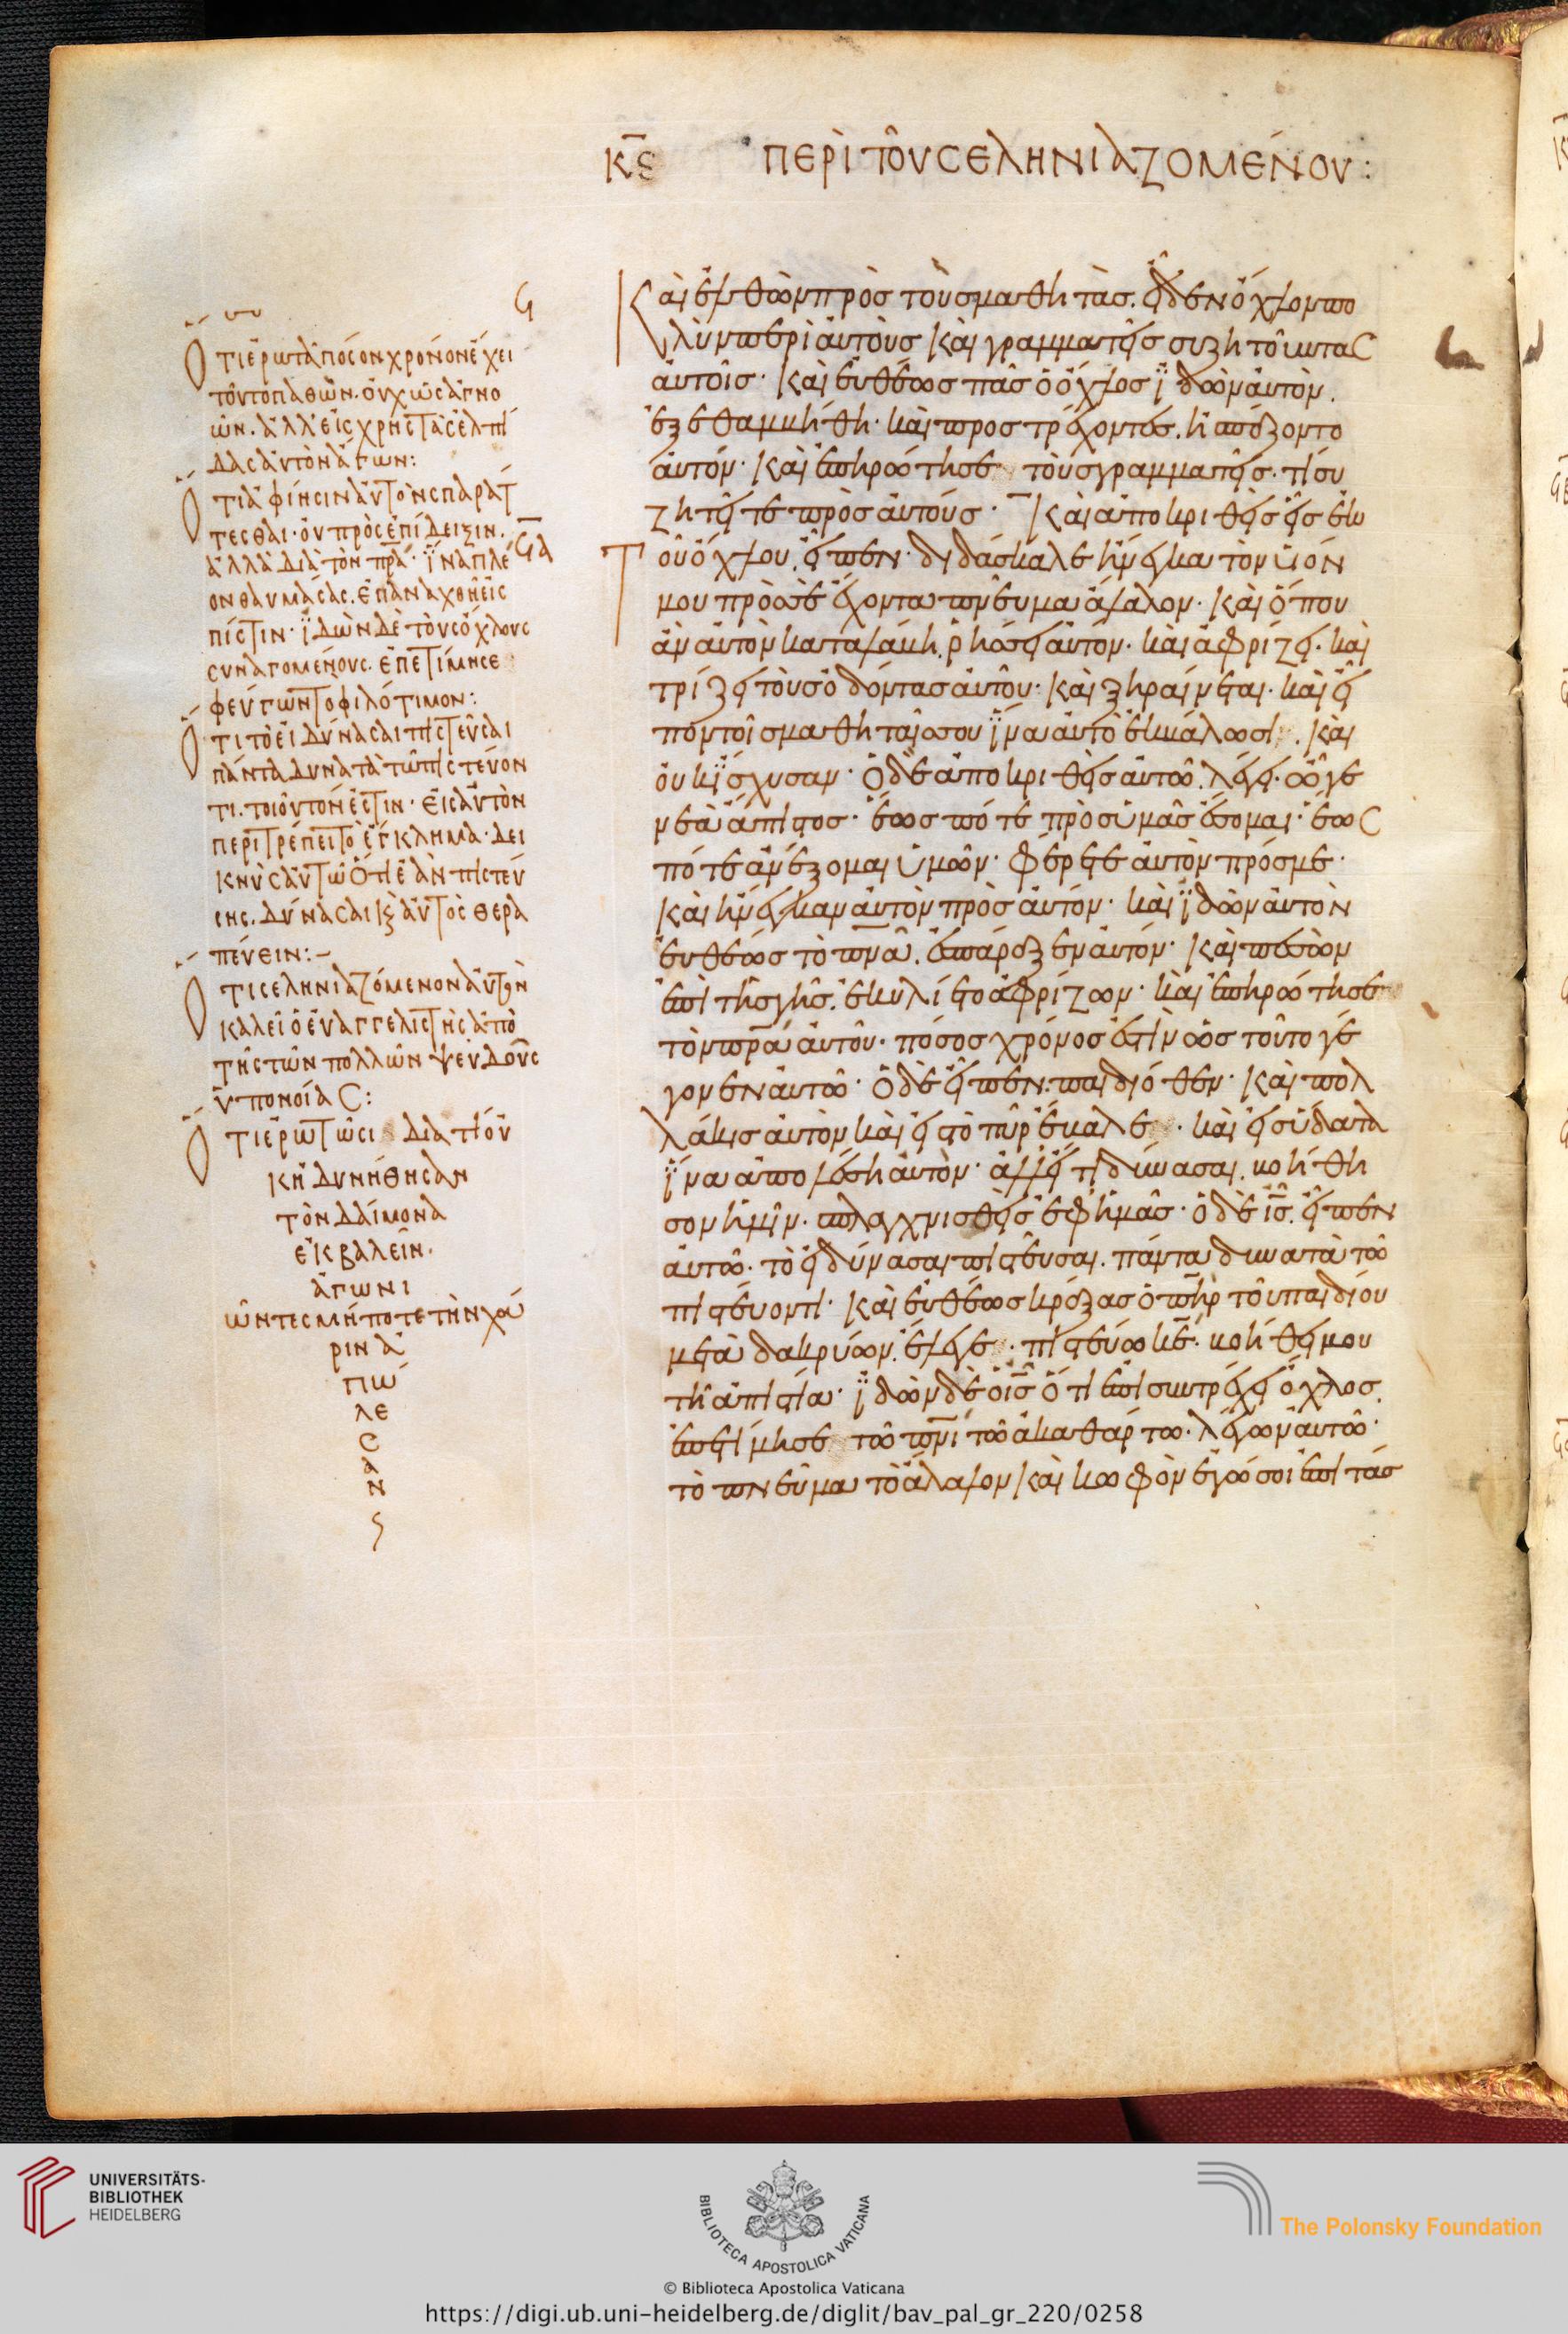 κϛ ΠΕΡῚ ΤΟΥ͂ ΣΕΛΗΝΙΑΖΟΜΈΝΟΥ:
Ϟ
Ὅτι ἐρωτᾶ πόσον χρόνον ἔχει
τοῦτο παθὼν· οὐχ ὡς ἀγνο
ῶν. ἀλλ' εἰς χρηστὰς ἐλπί
δας αὐτὸν ἄγων:
Ὅτι ἀφίησιν αὐτὸν σπαράτ
τεσθαι· οὐ πρὸς ἐπίδειξιν.
ἀλλὰ διὰ τὸν πρα· ἵνα πλέ
ον θαυμάσας. ἐπαναχθῆ εἰς
πίστιν· ἰδὼν δὲ τοὺς ὄχλους
συναγομένους. ἐπετίμησε
φεύγων τὸ φιλότιμον:
Ὅτι τὸ εἰ δύνασαι πιστεῦσαι
πάντα δυνατὰ τῶ πιστεύον
τι. τοιοῦτόν ἐστιν· εἰς αὐτὸν
περιτρέπει τὸ ἔγκλημα· δει
κνὺς αὐτῶ ὅτι ἐὰν πιστεύ
σης. δύνασαι κ αὐτὸς θερα
πεύειν:-
Ὅτι σεληνιαζόμενον αὐτὸν
καλεῖ ὁ εὐαγγελιστὴς ἀπὸ
τῆς τῶν πολλῶν ψευδοῦς
ὑπονοίας:
Ὅτι ἐρωτῶσι διατί οὐ
κ ἠδυνήθησαν
τὸν δαίμονα
ἐκβαλεῖν·
ἀγωνι
ῶντες μήποτε τὴν χά
ριν ἀ
πώ
λε
σ
α
ν
Ϟα
Καὶ ἐλθὼν πρὸς τοὺς μαθητὰς. εἶδεν ὄχλον πο
λὺν περὶ αὐτοὺς καὶ γραμματεῖς συζητοῦντας
αὐτοῖς· καὶ εὐθέως πᾶς ὁ ὄχλος ἰδὼν αὐτὸν.
ἐξεθαμβήθη· καὶ προστρέχοντες. ἠσπάζοντο
αὐτόν· καὶ ἐπηρώτησε τοὺς γραμματεῖς· τί συ
ζητεῖτε πρὸς αὐτούς· Καὶ ἀποκριθεὶς εἷς ἐκ
τοῦ ὄχλου. εἶπεν· διδάσκαλε ἤνεγκα τὸν υἱόν
μου πρός σε ἔχοντα πνεῦμα ἄλαλον· καὶ ὅπου
ἂν αὐτὸν καταλάβη. ῥήσσει αὐτόν· καὶ ἀφρίζει· καὶ
τρίζει τοὺς ὀδόντας αὐτοῦ· καὶ ξηραίνεται· καὶ εἶ
πον τοῖς μαθηταῖς σου ἵνα αὐτὸ ἐκβάλωσι. καὶ
οὐκ ἴσχυσαν· Ὁ δὲ ἀποκριθεὶς αὐτῶ. λέγει· ὦ γε
νεὰ ἄπιστος· ἕως πότε πρὸς ὑμᾶς ἔσομαι· ἕως
πότε ἀνέξομαι ὑμῶν· φέρετε αὐτὸν πρός με·
καὶ ἤνεγκαν αὐτὸν πρὸς αὐτόν· καὶ ἰδὼν αὐτὸν
εὐθέως τὸ πνα. ἐσπάραξεν αὐτόν· καὶ πεσὼν
ἐπὶ τῆς γῆς. ἐκυλίετο ἀφρίζων· καὶ ἐπηρώτησε
τὸν πρα αὐτοῦ· πόσος χρόνος ἐστὶν ὡς τοῦτο γέ
γονεν αὐτῶ· Ὁ δὲ εἶπεν· παιδιόθεν· καὶ πολ
λάκις αὐτὸν καὶ εἰς τὸ πῦρ ἔβαλε· καὶ εἰς ὕδατα
ἵνα ἀπολέση αὐτόν· ἀλλ' εἴ τι δύνασαι. βοήθη
σον ἡμῖν. σπλαγχνισθεὶς ἐφ' ἡμᾶς· ὁ δὲ ις. εἶπεν
αὐτῶ· τὸ εἰ δύνασαι πιστεῦσαι. πάντα δυνατὰ τῶ
πιστεύοντι· καὶ εὐθέως κράξας ὁ πηρ τοῦ παιδίου
μετὰ δακρύων. ἔλεγε· πιστεύω κε· βοήθει μου
τῆ ἀπιστία· ἰδὼν δὲ ὁ ις ὅτι ἐπισυντρέχει ὄχλος.
ἐπετίμησε τῶ πνι τῶ ἀκαθάρτω· λέγων αὐτῶ·
τὸ πνεῦμα τὸ ἄλαλον καὶ κωφὸν ἐγώ σοι ἐπιτάσ
UNIVERSITÄTS-
BIBLIOTHEK
HEIDELBERG
BIBLIOTECA APOSTOLICA VATICANA
The Polonsky Foundation
© Biblioteca Apostolica Vaticana
https://digi.ub.uni-heidelberg.de/diglit/bav_pal_gr_220/0258